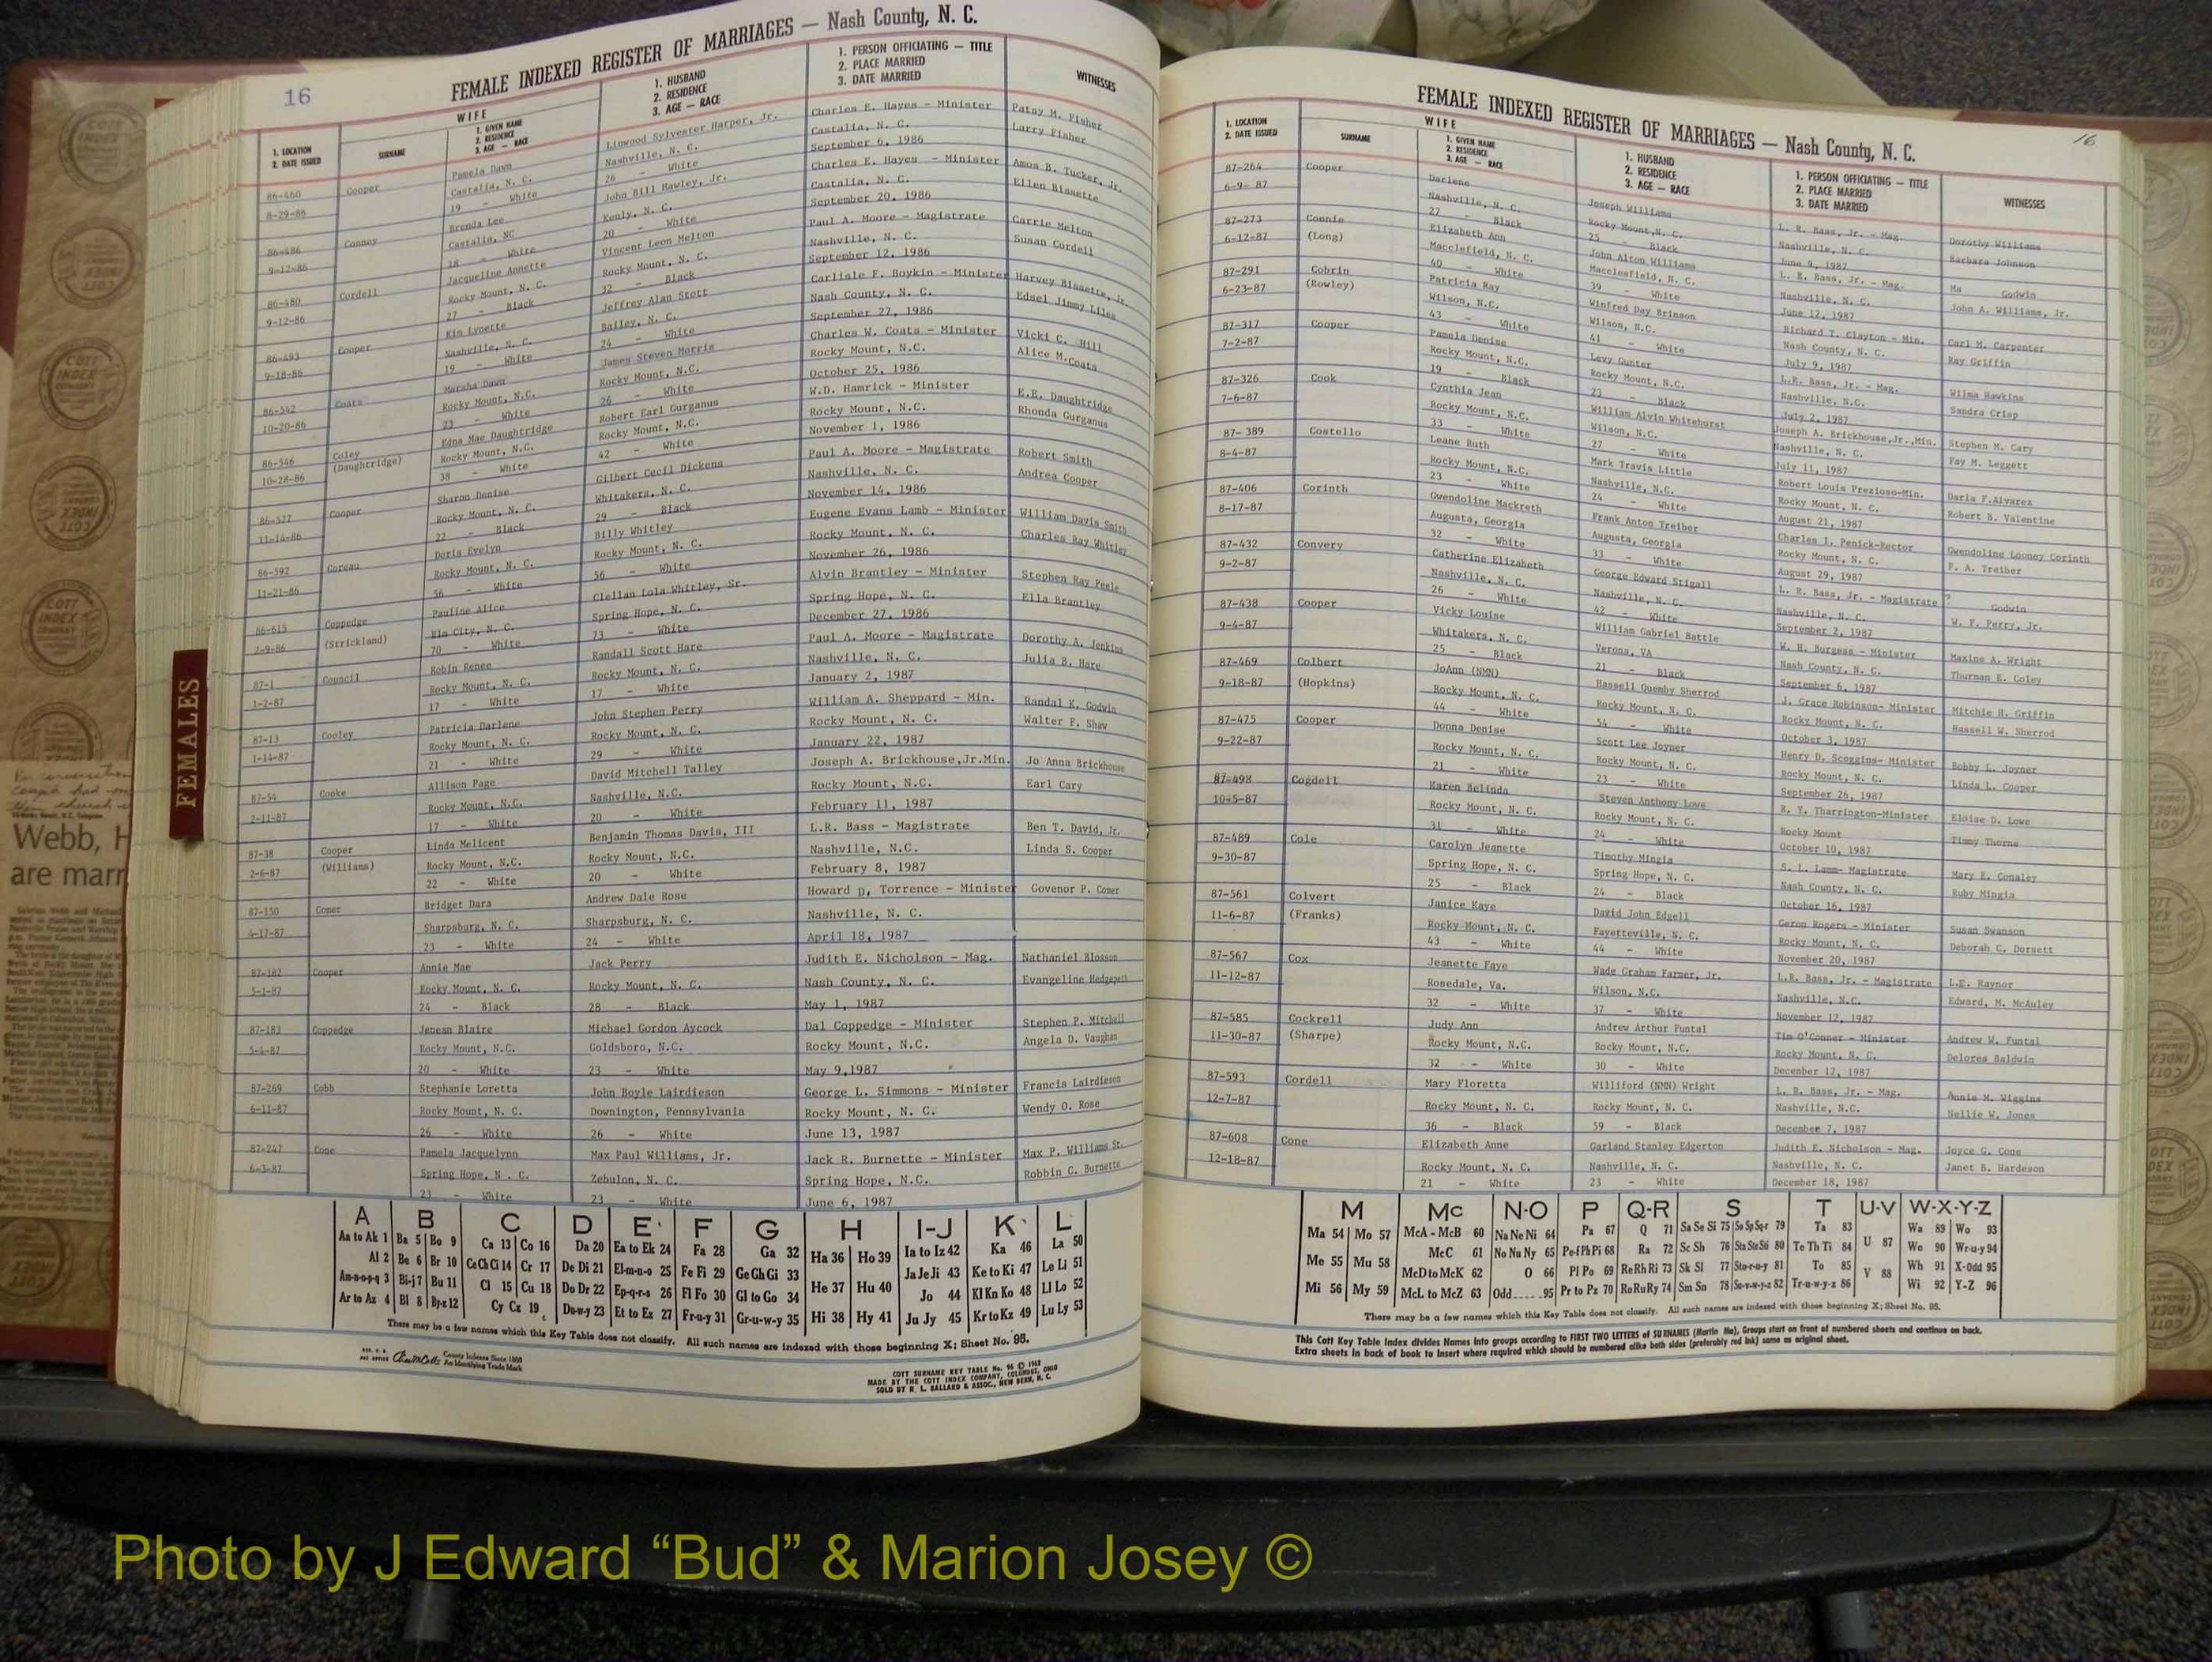 16
FEMALE INDEXED REGISTER OF MARRIAGES — Nash County, N. C.
1. LOCATION 2. DATE ISSUED | SURNAME | WIFE 1. GIVEN NAME 2. RESIDENCE 3. AGE — RACE | 1. HUSBAND 2. RESIDENCE 3. AGE — RACE | 1. PERSON OFFICIATING — TITLE 2. PLACE MARRIED 3. DATE MARRIED | WITNESSES
86-460 Cooper Pamela Dawn Linwood Sylvester Harper, Jr. Charles E. Hayes - Minister Patsy M. Fisher
8-29-86 Castalia, N. C. Nashville, N. C. Castalia, N. C. Larry Fisher
19 - White 26 - White September 6, 1986
86-486 Conney Brenda Lee John Bill Hawley, Jr. Charles E. Hayes - Minister Amos B. Tucker, Jr.
9-12-86 Castalia, NC Kenly, N. C. Castalia, N. C. Ellen Bissette
18 - White 20 - White September 20, 1986
86-480 Cordell Jacqueline Annette Vincent Leon Melton Paul A. Moore - Magistrate Carrie Melton
9-12-86 Rocky Mount, N. C. Rocky Mount, N. C. Nashville, N. C. Susan Cordell
27 - Black 32 - Black September 12, 1986
86-493 Cooper Kim Lynette Jeffrey Alan Stott Carlisle F. Boykin - Minister Harvey Bissette, Jr.
9-18-86 Nashville, N. C. Bailey, N. C. Nash County, N. C. Edsel Jimmy Liles
19 - White 24 - White September 27, 1986
86-542 Coats Marsha Dawn James Steven Morris Charles W. Coats - Minister Vicki C. Hill
10-20-86 Rocky Mount, N.C. Rocky Mount, N.C. Rocky Mount, N.C. Alice M.Coats
23 - White 26 - White October 25, 1986
86-546 Coley Edna Mae Daughtridge Robert Earl Gurganus W.D. Hamrick - Minister E.E. Daughtridge
10-28-86 (Daughtridge) Rocky Mount, N.C. Rocky Mount, N.C. Rocky Mount, N.C. Rhonda Gurganus
38 - White 42 - White November 1, 1986
86-577 Cooper Sharon Denise Gilbert Cecil Dickens Paul A. Moore - Magistrate Robert Smith
11-14-86 Rocky Mount, N. C. Whitakers, N. C. Nashville, N. C. Andrea Cooper
22 - Black 29 - Black November 14, 1986
86-592 Coreau Doris Evelyn Billy Whitley Eugene Evans Lamb - Minister William Davis Smith
11-21-86 Rocky Mount, N. C. Rocky Mount, N. C. Rocky Mount, N. C. Charles Ray Whitley
56 - White 56 - White November 26, 1986
86-615 Coppedge Pauline Alice Clellan Lola Whitley, Sr. Alvin Brantley - Minister Stephen Ray Peele
2-9-86 (Strickland) Elm City, N. C. Spring Hope, N. C. Spring Hope, N. C. Ella Brantley
70 - White 73 - White December 27, 1986
87-1 Council Robin Renee Randall Scott Hare Paul A. Moore - Magistrate Dorothy A. Jenkins
1-2-87 Rocky Mount, N. C. Rocky Mount, N. C. Nashville, N. C. Julia B. Hare
17 - White 17 - White January 2, 1987
87-13 Cooley Patricia Darlene John Stephen Perry William A. Sheppard - Min. Randal K. Godwin
1-14-87 Rocky Mount, N. C. Rocky Mount, N. C. Rocky Mount, N. C. Walter F. Shaw
21 - White 29 - White January 22, 1987
87-54 Cooke Allison Page David Mitchell Talley Joseph A. Brickhouse,Jr.Min. Jo Anna Brickhouse
2-11-87 Rocky Mount, N.C. Nashville, N.C. Rocky Mount, N.C. Earl Cary
17 - White 20 - White February 11, 1987
87-38 Cooper Linda Melicent Benjamin Thomas Davis, III L.R. Bass - Magistrate Ben T. David, Jr.
2-6-87 (Williams) Rocky Mount, N.C. Rocky Mount, N.C. Nashville, N.C. Linda S. Cooper
22 - White 20 - White February 8, 1987
87-150 Comer Bridget Dara Andrew Dale Rose Howard D. Torrence - Minister Govenor P. Comer
4-17-87 Sharpsburg, N. C. Sharpsburg, N. C. Nashville, N. C.
23 - White 24 - White April 18, 1987
87-182 Cooper Annie Mae Jack Perry Judith E. Nicholson - Mag. Nathaniel Blosson
5-1-87 Rocky Mount, N. C. Rocky Mount, N. C. Nash County, N. C. Evangeline Hedgepeth
24 - Black 28 - Black May 1, 1987
87-183 Coppedge Jenean Blaire Michael Gordon Aycock Dal Coppedge - Minister Stephen P. Mitchell
5-4-87 Rocky Mount, N.C. Goldsboro, N.C. Rocky Mount, N.C. Angela D. Vaughan
20 - White 23 - White May 9,1987
87-269 Cobb Stephanie Loretta John Boyle Lairdieson George L. Simmons - Minister Francis Lairdieson
6-11-87 Rocky Mount, N. C. Downington, Pennsylvania Rocky Mount, N. C. Wendy O. Rose
26 - White 26 - White June 13, 1987
87-247 Cone Pamela Jacquelynn Max Paul Williams, Jr. Jack R. Burnette - Minister Max P. Williams Sr.
6-3-87 Spring Hope, N . C. Zebulon, N. C. Spring Hope, N.C. Robbin C. Burnette
23 - White 23 - White June 6, 1987
A B C D E F G H I-J K L
Aa to Ak 1 Ba 5 Bo 9 Ca 13 Co 16 Da 20 Ea to Ek 24 Fa 28 Ga 32 Ha 36 Ho 39 Ia to Iz 42 Ka 46 La 50
Al 2 Be 6 Br 10 Ce Ch Ci 14 Cr 17 De Di 21 El-m-n-o 25 Fe Fi 29 Ge Gh Gi 33 He 37 Hu 40 Ja Je Ji 43 Ke to Ki 47 Le Li 51
Am-n-o-p-q 3 Bi-j 7 Bu 11 Cl 15 Cu 18 Do Dr 22 Ep-q-r-s 26 Fl Fo 30 Gl to Go 34 Jo 44 Kl Kn Ko 48 Ll Lo 52
Ar to Az 4 Bl 8 By-z 12 Cy Cz 19 Du-w-y 23 Et to Ez 27 Fr-u-y 31 Gr-u-w-y 35 Hi 38 Hy 41 Ju Jy 45 Kr to Kz 49 Lu Ly 53
There may be a few names which this Key Table does not classify. All such names are indexed with those beginning X; Sheet No. 95.
County Indexes Since 1888
An Identifying Trade Mark
COTT SURNAME KEY TABLE No. 96 © 1962
MADE BY THE COTT INDEX COMPANY, COLUMBUS, OHIO
SOLD BY H. L. BALLARD & ASSOC., NEW BERN, N. C.
FEMALES
Webb, H
are marr
FEMALE INDEXED REGISTER OF MARRIAGES — Nash County, N. C.
16
1. LOCATION 2. DATE ISSUED | SURNAME | WIFE 1. GIVEN NAME 2. RESIDENCE 3. AGE — RACE | 1. HUSBAND 2. RESIDENCE 3. AGE — RACE | 1. PERSON OFFICIATING — TITLE 2. PLACE MARRIED 3. DATE MARRIED | WITNESSES
87-264 Cooper Darlene Joseph Williams L. R. Bass, Jr. - Mag. Dorothy Williams
6-9- 87 Nashville, N. C. Rocky Mount,N. C. Nashville, N. C. Barbara Johnson
27 - Black 25 - Black June 9, 1987
87-273 Connie Elizabeth Ann John Alton Williams L. R. Bass, Jr. - Mag. Ma Godwin
6-12-87 (Long) Macclefield, N. C. Macclesfield, N. C. Nashville, N. C. John A. Williams, Jr.
40 - White 39 - White June 12, 1987
87-291 Cobrin Patricia Ray Winfred Day Brinson Richard T. Clayton - Min. Carl M. Carpenter
6-23-87 (Rowley) Wilson, N.C. Wilson, N.C. Nash County, N. C. Ray Griffin
43 - White 41 - White July 9, 1987
87-317 Cooper Pamela Denise Levy Gunter L.R. Bass, Jr. - Mag. Wilma Hawkins
7-2-87 Rocky Mount, N.C. Rocky Mount, N.C. Nashville, N.C. Sandra Crisp
19 - Black 23 - Black July 2, 1987
87-326 Cook Cynthia Jean William Alvin Whitehurst Joseph A. Brickhouse,Jr.,Min. Stephen M. Cary
7-6-87 Rocky Mount, N.C. Wilson, N.C. Nashville, N. C. Fay M. Leggett
33 - White 27 - White July 11, 1987
87- 389 Costello Leane Ruth Mark Travis Little Robert Louis Prezioso-Min. Darla F.Alvarez
8-4-87 Rocky Mount, N.C. Nashville, N.C. Rocky Mount, N. C. Robert B. Valentine
23 - White 24 - White August 21, 1987
87-406 Corinth Gwendoline Mackreth Frank Anton Treiber Charles L. Penick-Rector Gwendoline Looney Corinth
8-17-87 Augusta, Georgia Augusta, Georgia Rocky Mount, N. C. F. A. Treiber
32 - White 33 - White August 29, 1987
87-432 Convery Catherine Elizabeth George Edward Stigall L. R. Bass, Jr. - Magistrate ? Godwin
9-2-87 Nashville, N. C. Nashville, N. C. Nashville, N. C. W. F. Perry, Jr.
26 - White 42 - White September 2, 1987
87-438 Cooper Vicky Louise William Gabriel Battle W. H. Burgess - Minister Maxine A. Wright
9-4-87 Whitakers, N. C. Verona, VA Nash County, N. C. Thurman E. Coley
25 - Black 21 - Black September 6, 1987
87-469 Colbert JoAnn (NMN) Hassell Quemby Sherrod J. Grace Robinson- Minister Mitchie H. Griffin
9-18-87 (Hopkins) Rocky Mount, N. C. Rocky Mount, N. C. Rocky Mount, N. C. Hassell W. Sherrod
44 - White 54 - White October 3, 1987
87-475 Cooper Donna Denise Scott Lee Joyner Henry D. Scoggins- Minister Bobby L. Joyner
9-22-87 Rocky Mount, N. C. Rocky Mount, N. C. Rocky Mount, N. C. Linda L. Cooper
21 - White 23 - White September 26, 1987
87-498 Cogdell Karen Belinda Steven Anthony Lowe R. Y. Tharrington-Minister Eloise D. Lowe
10-5-87 Rocky Mount, N. C. Rocky Mount, N. C. Rocky Mount Timmy Thorne
31 - White 24 - White October 10, 1987
87-489 Cole Carolyn Jeanette Timothy Mingia S. L. Lamm- Magistrate Mary E. Conaley
9-30-87 Spring Hope, N. C. Spring Hope, N. C. Nash County, N. C. Ruby Mingia
25 - Black 24 - Black October 16, 1987
87-561 Colvert Janice Kaye David John Edgell Geron Rogers - Minister Susan Swanson
11-6-87 (Franks) Rocky Mount, N. C. Fayetteville, N. C. Rocky Mount, N. C. Deborah C. Dorsett
43 - White 44 - White November 20, 1987
87-567 Cox Jeanette Faye Wade Graham Farmer, Jr. L.R. Bass, Jr. - Magistrate L.E. Raynor
11-12-87 Rosedale, Va. Wilson, N.C. Nashville, N.C. Edward, M. McAuley
32 - White 37 - White November 12, 1987
87-585 Cockrell Judy Ann Andrew Arthur Funtal Tim O'Conner - Minister Andrew W. Funtal
11-30-87 (Sharpe) Rocky Mount, N.C. Rocky Mount, N.C. Rocky Mount, N. C. Delores Baldwin
32 - White 30 - White December 12, 1987
87-593 Cordell Mary Floretta Williford (NMN) Wright L. R. Bass, Jr. - Mag. Annie M. Wiggins
12-7-87 Rocky Mount, N. C. Rocky Mount, N. C. Nashville, N.C. Nellie W. Jones
36 - Black 59 - Black December 7, 1987
87-608 Cone Elizabeth Anne Garland Stanley Edgerton Judith E. Nicholson - Mag. Joyce G. Cone
12-18-87 Rocky Mount, N. C. Nashville, N. C. Nashville, N. C. Janet B. Hardeson
21 - White 23 - White December 18, 1987
M Mc N-O P Q-R S T U-V W-X-Y-Z
Ma 54 Mo 57 McA - McB 60 Na Ne Ni 64 Pa 67 Q 71 Sa Se Si 75 So Sp Sq-r 79 Ta 83 U 87 Wa 89 Wo 93
Me 55 Mu 58 McC 61 No Nu Ny 65 Pe-f Ph Pi 68 Ra 72 Sc Sh 76 Sta Ste Sti 80 Te Th Ti 84 We 90 Wr-u-y 94
McD to McK 62 O 66 Pl Po 69 Re Rh Ri 73 Sk Sl 77 Sto-r-u-y 81 To 85 V 88 Wh 91 X-Odd 95
Mi 56 My 59 McL to McZ 63 Odd.....95 Pr to Pz 70 Ro Ru Ry 74 Sm Sn 78 Su-v-w-y-z 82 Tr-u-w-y-z 86 Wi 92 Y-Z 96
There may be a few names which this Key Table does not classify. All such names are indexed with those beginning X; Sheet No. 95.
This Cott Key Table Index divides Names into groups according to FIRST TWO LETTERS of SURNAMES (Martin Ma), Groups start on front of numbered sheets and continue on back.
Extra sheets in back of book to insert where required which should be numbered alike both sides (preferably red ink) same as original sheet.
Photo by J Edward “Bud” & Marion Josey ©